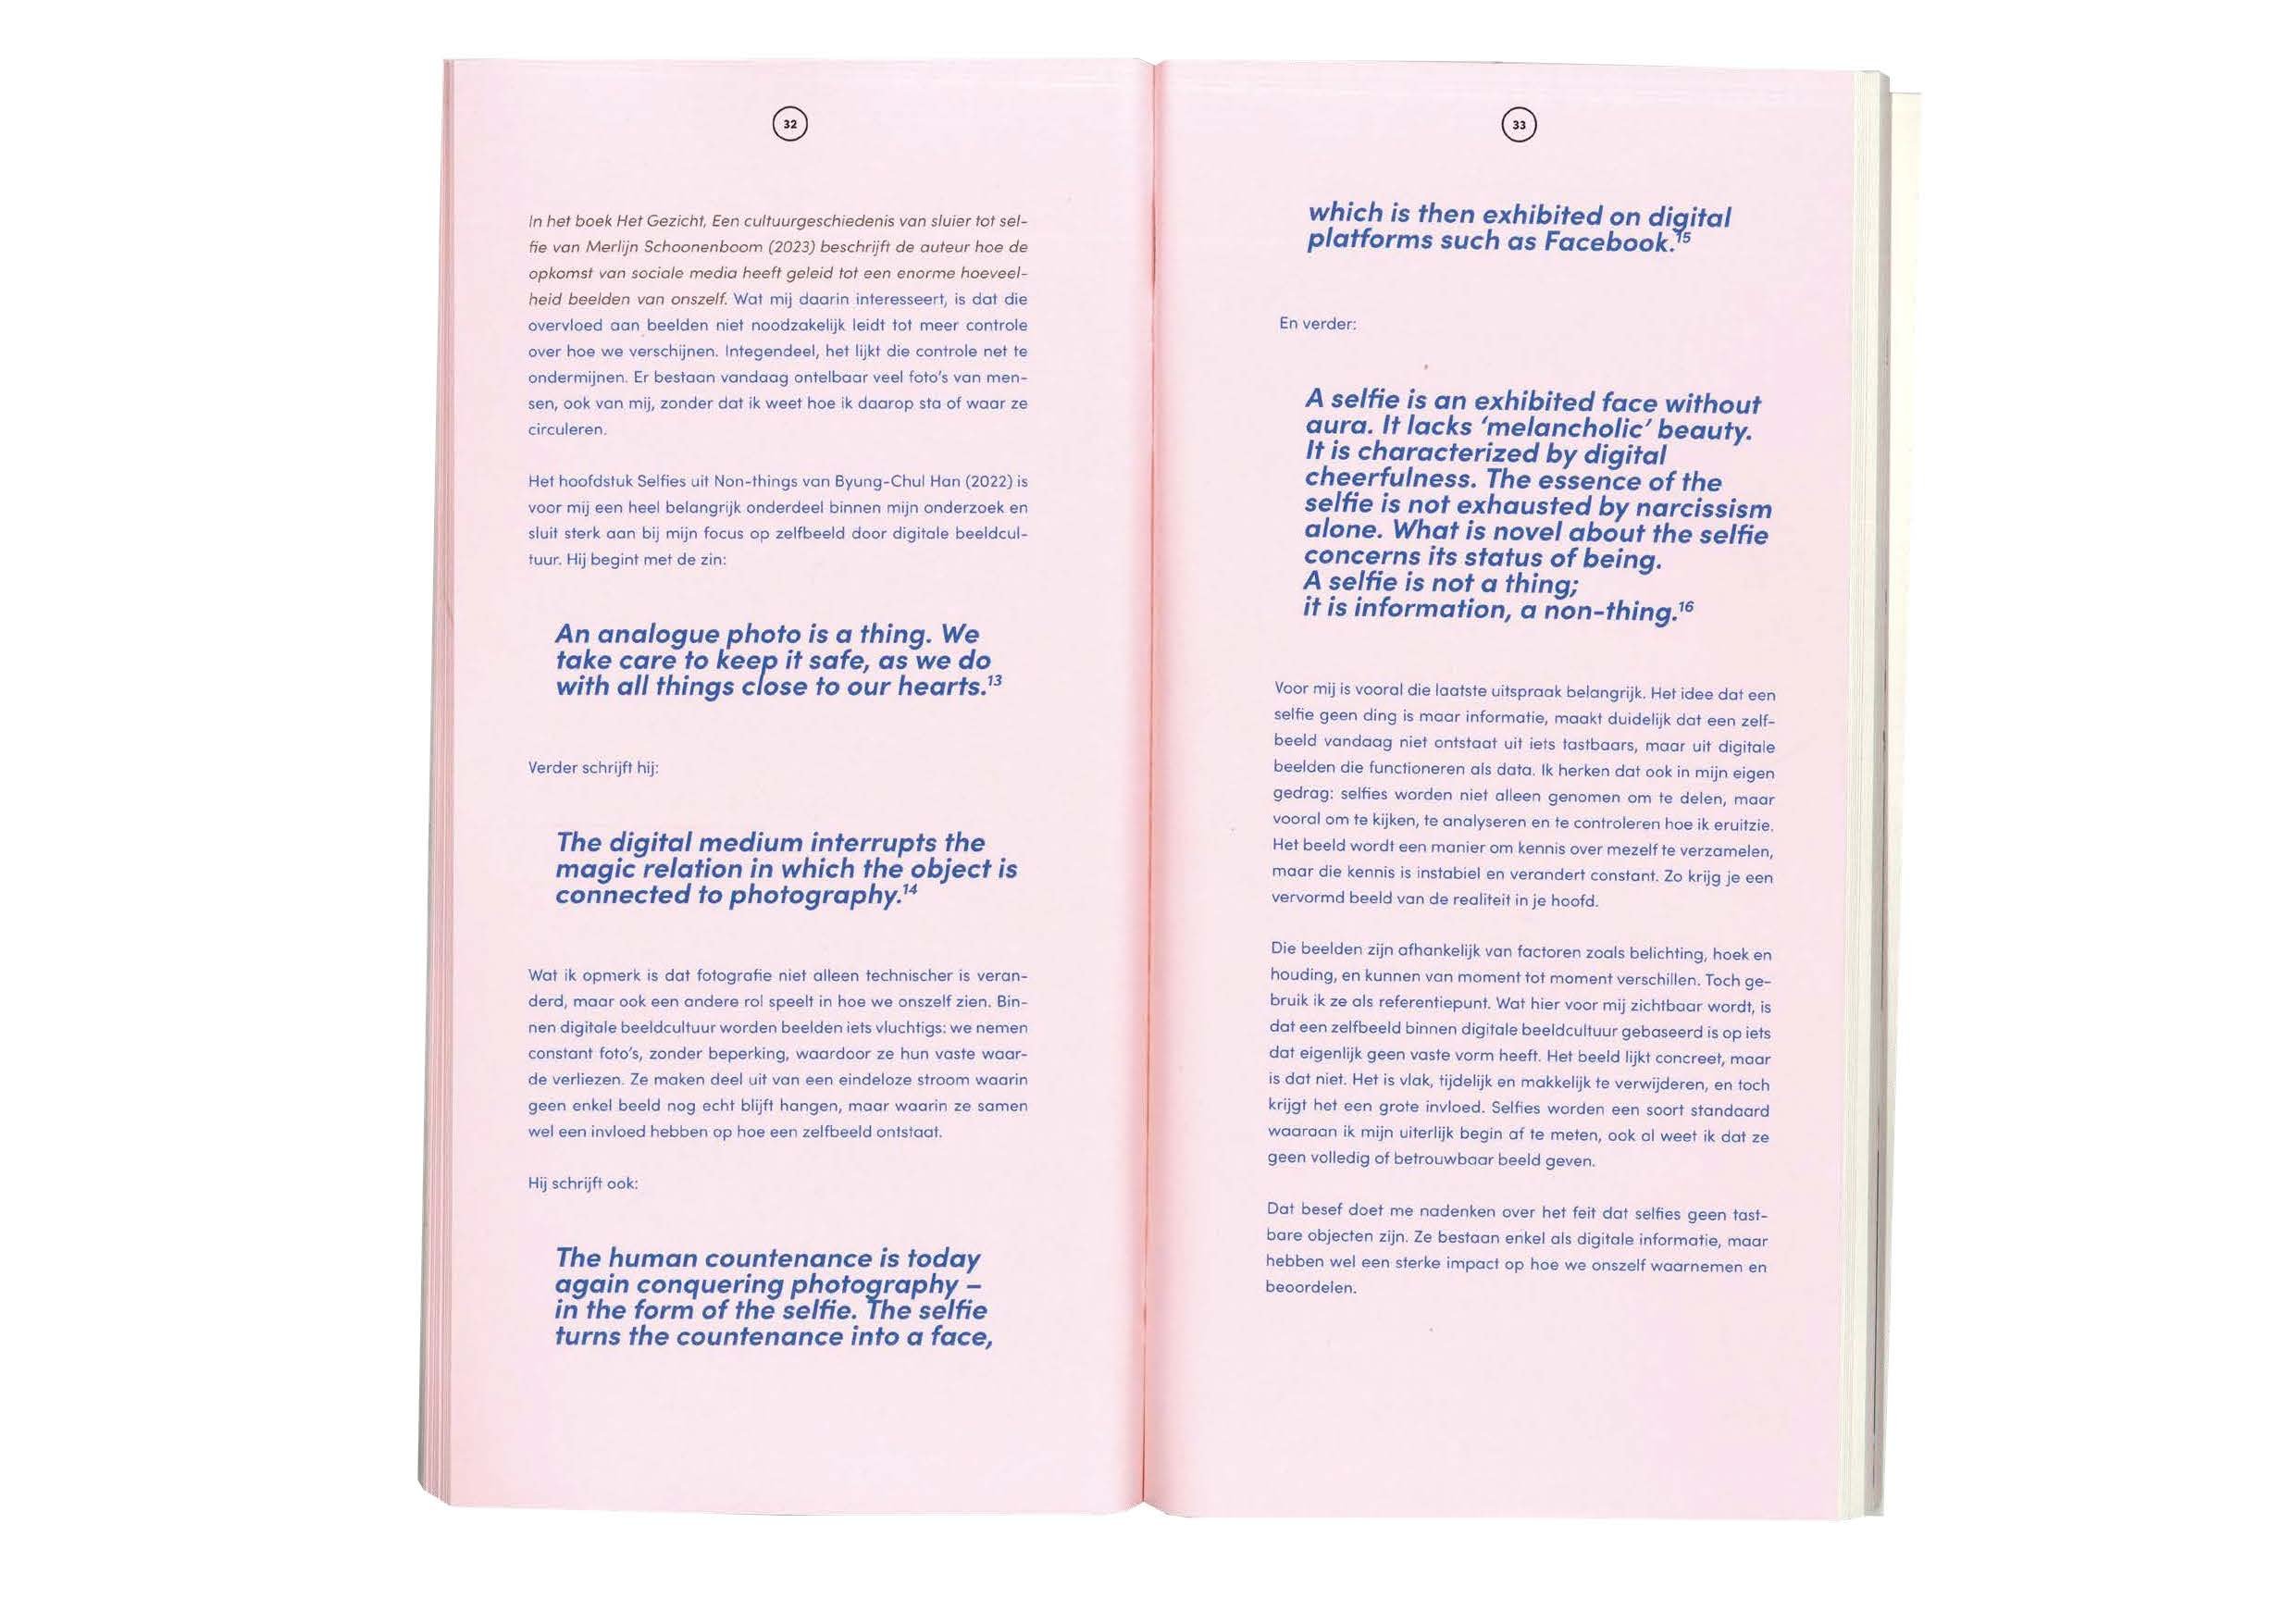 32
In het boek Het Gezicht, Een cultuurgeschiedenis van sluier tot sel-
fie van Merlijn Schoonenboom (2023) beschrijft de auteur hoe de
opkomst van sociale media heeft geleid tot een enorme hoeveel-
heid beelden van onszelf. Wat mij daarin interesseert, is dat die
overvloed aan beelden niet noodzakelijk leidt tot meer controle
over hoe we verschijnen. Integendeel, het lijkt die controle net te
ondermijnen. Er bestaan vandaag ontelbaar veel foto's van men-
sen, ook van mij, zonder dat ik weet hoe ik daarop sta of waar ze
circuleren.
Het hoofdstuk Selfies uit Non-things van Byung-Chul Han (2022) is
voor mij een heel belangrijk onderdeel binnen mijn onderzoek en
sluit sterk aan bij mijn focus op zelfbeeld door digitale beeldcul-
tuur. Hij begint met de zin:
An analogue photo is a thing. We
take care to keep it safe, as we do
with all things close to our hearts.13
Verder schrijft hij:
The digital medium interrupts the
magic relation in which the object is
connected to photography.14
Wat ik opmerk is dat fotografie niet alleen technischer is veran-
derd, maar ook een andere rol speelt in hoe we onszelf zien. Bin-
nen digitale beeldcultuur worden beelden iets vluchtigs: we nemen
constant foto's, zonder beperking, waardoor ze hun vaste waar-
de verliezen. Ze maken deel uit van een eindeloze stroom waarin
geen enkel beeld nog echt blijft hangen, maar waarin ze samen
wel een invloed hebben op hoe een zelfbeeld ontstaat.
Hij schrijft ook:
The human countenance is today
again conquering photography –
in the form of the selfie. The selfie
turns the countenance into a face,
33
which is then exhibited on digital
platforms such as Facebook.15
En verder:
A selfie is an exhibited face without
aura. It lacks 'melancholic' beauty.
It is characterized by digital
cheerfulness. The essence of the
selfie is not exhausted by narcissism
alone. What is novel about the selfie
concerns its status of being.
A selfie is not a thing;
it is information, a non-thing.16
Voor mij is vooral die laatste uitspraak belangrijk. Het idee dat een
selfie geen ding is maar informatie, maakt duidelijk dat een zelf-
beeld vandaag niet ontstaat uit iets tastbaars, maar uit digitale
beelden die functioneren als data. Ik herken dat ook in mijn eigen
gedrag: selfies worden niet alleen genomen om te delen, maar
vooral om te kijken, te analyseren en te controleren hoe ik eruitzie.
Het beeld wordt een manier om kennis over mezelf te verzamelen,
maar die kennis is instabiel en verandert constant. Zo krijg je een
vervormd beeld van de realiteit in je hoofd.
Die beelden zijn afhankelijk van factoren zoals belichting, hoek en
houding, en kunnen van moment tot moment verschillen. Toch ge-
bruik ik ze als referentiepunt. Wat hier voor mij zichtbaar wordt, is
dat een zelfbeeld binnen digitale beeldcultuur gebaseerd is op iets
dat eigenlijk geen vaste vorm heeft. Het beeld lijkt concreet, maar
is dat niet. Het is vlak, tijdelijk en makkelijk te verwijderen, en toch
krijgt het een grote invloed. Selfies worden een soort standaard
waaraan ik mijn uiterlijk begin af te meten, ook al weet ik dat ze
geen volledig of betrouwbaar beeld geven.
Dat besef doet me nadenken over het feit dat selfies geen tast-
bare objecten zijn. Ze bestaan enkel als digitale informatie, maar
hebben wel een sterke impact op hoe we onszelf waarnemen en
beoordelen.